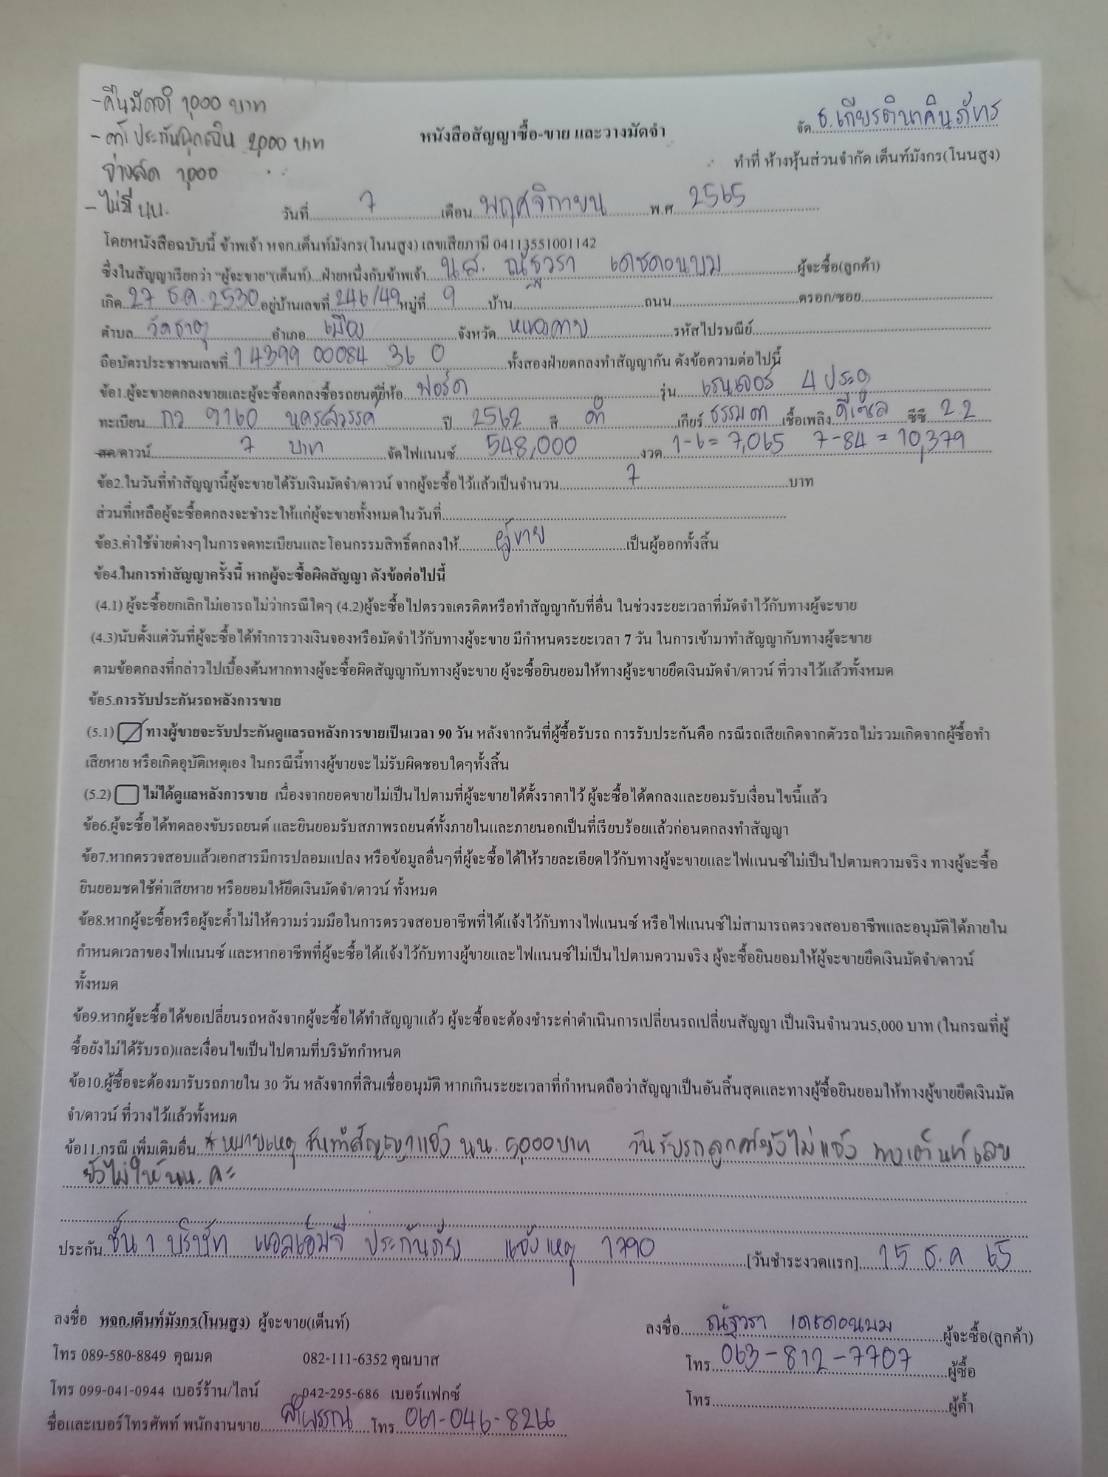 -คืนมัดจำ 1,000 บาท
-ค่าประกันฉุกเฉิน 2,000 บาท
จ่ายสด 1,000
-ไม่มี นน.
หนังสือสัญญาซื้อ-ขาย และวางมัดจำ
จัด ธ.เกียรตินาคินภัทร
ทำที่ ห้างหุ้นส่วนจำกัด เต็นท์มังกร(โนนสูง)
วันที่ 7 เดือน พฤศจิกายน พ.ศ 2565
โดยหนังสือฉบับนี้ ข้าพเจ้า หจก.เต็นท์มังกร(โนนสูง) เลขเสียภาษี 04113551001142
ซึ่งในสัญญาเรียกว่า "ผู้จะขาย"(เต็นท์)...ฝ่ายหนึ่งกับข้าพเจ้า น.ส. ณัฐวรา เดชดอนบม ผู้จะซื้อ(ลูกค้า)
เกิด 27 ธ.ค. 2530 อยู่บ้านเลขที่ 246/49 หมู่ที่ 9 บ้าน ถนน ตรอก/ซอย
ตำบล วัดธาตุ อำเภอ เมือง จังหวัด หนองคาย รหัสไปรษณีย์
ถือบัตรประชาชนเลขที่ 1 4399 00084 36 0 ทั้งสองฝ่ายตกลงทำสัญญากัน ดังข้อความต่อไปนี้
ข้อ1.ผู้จะขายตกลงขายและผู้จะซื้อตกลงซื้อรถยนต์ยี่ห้อ ฟอร์ด รุ่น เรนเจอร์ 4 ประตู
ทะเบียน กว 9160 นครสวรรค์ ปี 2562 สี ดำ เกียร์ ธรรมดา เชื้อเพลิง ดีเซล ซีซี 2.2
สด/ดาวน์ 7 บาท จัดไฟแนนซ์ 548,000 งวด 1-6 = 7,065 7-84 = 10,379
ข้อ2.ในวันที่ทำสัญญานี้ผู้จะขายได้รับเงินมัดจำ/ดาวน์ จากผู้จะซื้อไว้แล้วเป็นจำนวน 7 บาท
ส่วนที่เหลือผู้จะซื้อตกลงจะชำระให้แก่ผู้จะขายทั้งหมดในวันที่
ข้อ3.ค่าใช้จ่ายต่างๆในการจดทะเบียนและโอนกรรมสิทธิ์ตกลงให้ ผู้ขาย เป็นผู้ออกทั้งสิ้น
ข้อ4.ในการทำสัญญาครั้งนี้ หากผู้จะซื้อผิดสัญญา ดังข้อต่อไปนี้
(4.1) ผู้จะซื้อยกเลิกไม่เอารถไม่ว่ากรณีใดๆ (4.2)ผู้จะซื้อไปตรวจเครดิตหรือทำสัญญากับที่อื่น ในช่วงระยะเวลาที่มัดจำไว้กับทางผู้จะขาย
(4.3)นับตั้งแต่วันที่ผู้จะซื้อได้ทำการวางเงินจองหรือมัดจำไว้กับทางผู้จะขาย มีกำหนดระยะเวลา 7 วัน ในการเข้ามาทำสัญญากับทางผู้จะขาย
ตามข้อตกลงที่กล่าวไปเบื้องต้นหากทางผู้จะซื้อผิดสัญญากับทางผู้จะขาย ผู้จะซื้อยินยอมให้ทางผู้จะขายยึดเงินมัดจำ/ดาวน์ ที่วางไว้แล้วทั้งหมด
ข้อ5.การรับประกันรถหลังการขาย
(5.1) ทางผู้ขายจะรับประกันดูแลรถหลังการขายเป็นเวลา 90 วัน หลังจากวันที่ผู้ซื้อรับรถ การรับประกันคือ กรณีรถเสียเกิดจากตัวรถ ไม่รวมเกิดจากผู้ซื้อทำ
เสียหาย หรือเกิดอุบัติเหตุเอง ในกรณีนี้ทางผู้ขายจะไม่รับผิดชอบใดๆทั้งสิ้น
(5.2) ไม่ได้ดูแลหลังการขาย เนื่องจากยอดขายไม่เป็นไปตามที่ผู้จะขายได้ตั้งราคาไว้ ผู้จะซื้อได้ตกลงและยอมรับเงื่อนไขนี้แล้ว
ข้อ6.ผู้จะซื้อได้ทดลองขับรถยนต์ และยินยอมรับสภาพรถยนต์ทั้งภายในและภายนอกเป็นที่เรียบร้อยแล้วก่อนตกลงทำสัญญา
ข้อ7.หากตรวจสอบแล้วเอกสารมีการปลอมแปลง หรือข้อมูลอื่นๆที่ผู้จะซื้อได้ให้รายละเอียดไว้กับทางผู้จะขายและไฟแนนซ์ไม่เป็นไปตามความจริง ทางผู้จะซื้อ
ยินยอมชดใช้ค่าเสียหาย หรือยอมให้ยึดเงินมัดจำ/ดาวน์ ทั้งหมด
ข้อ8.หากผู้จะซื้อหรือผู้จะค้ำไม่ให้ความร่วมมือในการตรวจสอบอาชีพที่ได้แจ้งไว้กับทางไฟแนนซ์ หรือไฟแนนซ์ไม่สามารถตรวจสอบอาชีพและอนุมัติได้ภายใน
กำหนดเวลาของไฟแนนซ์ และหากอาชีพที่ผู้จะซื้อได้แจ้งไว้กับทางผู้ขายและไฟแนนซ์ไม่เป็นไปตามความจริง ผู้จะซื้อยินยอมให้ผู้จะขายยึดเงินมัดจำ/ดาวน์
ทั้งหมด
ข้อ9.หากผู้จะซื้อได้ขอเปลี่ยนรถหลังจากผู้จะซื้อได้ทำสัญญาแล้ว ผู้จะซื้อจะต้องชำระค่าดำเนินการเปลี่ยนรถเปลี่ยนสัญญา เป็นเงินจำนวน5,000 บาท (ในกรณที่ผู้
ซื้อยังไม่ได้รับรถ)และเงื่อนไขเป็นไปตามที่บริษัทกำหนด
ข้อ10.ผู้ซื้อจะต้องมารับรถภายใน 30 วัน หลังจากที่สินเชื่ออนุมัติ หากเกินระยะเวลาที่กำหนดถือว่าสัญญาเป็นอันสิ้นสุดและทางผู้ซื้อยินยอมให้ทางผู้ขายยึดเงินมัด
จำ/ดาวน์ ที่วางไว้แล้วทั้งหมด
ข้อ11.กรณี เพิ่มเติมอื่น * หมายเหตุ วันทำสัญญาแจ้ง นน. 5,000 บาท วันรับรถลูกค้ายังไม่แจ้ง ทางเต็นท์เลย
ยังไม่ให้ นน. ค่ะ
ประกัน ชั้น 1 บริษัท แอลเอ็มจี ประกันภัย แจ้งเหตุ 1790 [วันชำระงวดแรก] 15 ธ.ค 65
ลงชื่อ หจก.เต็นท์มังกร(โนนสูง) ผู้จะขาย(เต็นท์)
ลงชื่อ ณัฐวรา เดชดอนบม ผู้จะซื้อ(ลูกค้า)
โทร 089-580-8849 คุณมด 082-111-6352 คุณบาส
โทร 063-812-7707 ผู้ซื้อ
โทร 099-041-0944 เบอร์ร้าน/ไลน์ 042-295-686 เบอร์แฟกซ์
โทร ผู้ค้ำ
ชื่อและเบอร์โทรศัพท์ พนักงานขาย โทร 061-046-8266